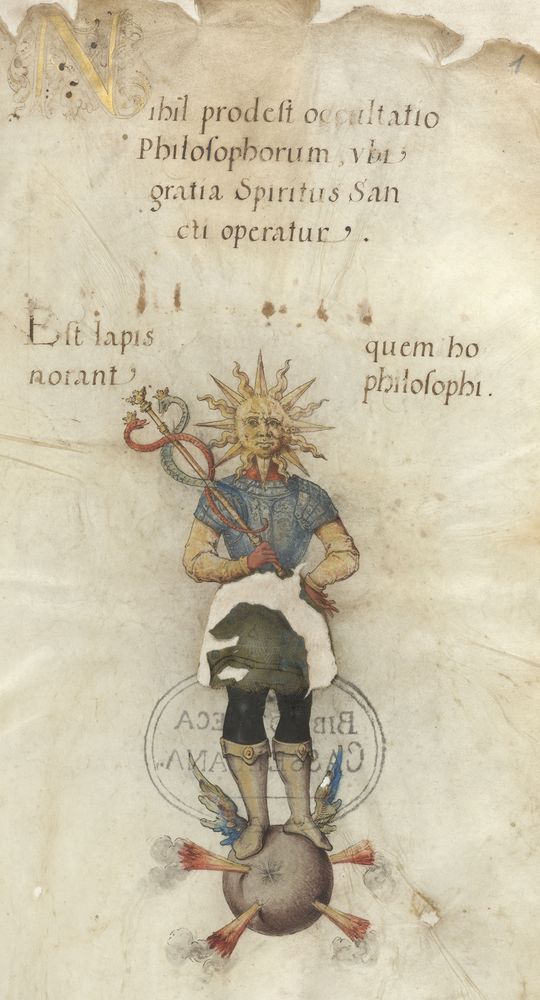 1
Nihil prodeſt occultatio
Philoſophorum, vbi
gratia Spiritus San
cti operatur.
Eſt lapis quem ho
norant philoſophi.